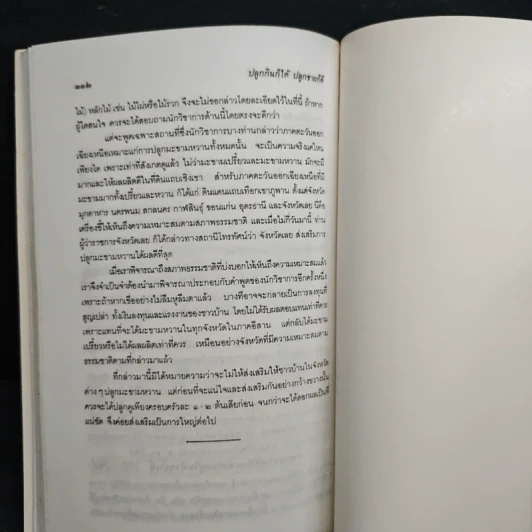 ๑๑๒
ปลูกกินก็ได้ ปลูกขายก็ดี
ไม้) หลักไม้ เช่น ไม้ไผ่หรือไม้รวก จึงจะไม่ขอกล่าวโดยละเอียดไว้ในที่นี้ ถ้าหาก
ผู้ใดสนใจ ควรจะได้สอบถามนักวิชาการด้านนี้โดยตรงจะดีกว่า
แต่จะพูดเฉพาะสถานที่ซึ่งนักวิชาการบางท่านกล่าวว่าภาคตะวันออก
เฉียงเหนือเหมาะแก่การปลูกมะขามหวานทั้งหมดนั้น จะเป็นความจริงแค่ไหน
เพียงใด เพราะเท่าที่สังเกตดูแล้ว ไม่ว่ามะขามเปรี้ยวและมะขามหวาน มักจะมี
มากและให้ผลผลิตดีในที่ดินแถบเชิงเขา สำหรับภาคตะวันออกเฉียงเหนือที่มี
มะขามมากทั้งเปรี้ยวและหวาน ก็ได้แก่ ดินแดนแถบเทือกเขาภูพาน ตั้งแต่จังหวัด
มุกดาหาร นครพนม สกลนคร กาฬสินธุ์ ขอนแก่น อุดรธานี และจังหวัดเลย นี่คือ
เครื่องชี้ให้เห็นถึงความเหมาะสมตามสภาพธรรมชาติ และเมื่อไม่กี่วันมานี้ ท่าน
ผู้ว่าราชการจังหวัดเลย ก็ได้กล่าวทางสถานีโทรทัศน์ว่า จังหวัดเลย ส่งเสริมการ
ปลูกมะขามหวานได้ผลดีที่สุด
เมื่อเราพิจารณาถึงสภาพธรรมชาติที่บ่งบอกให้เห็นถึงความเหมาะสมแล้ว
เราจึงจำเป็นจำต้องนำมาพิจารณาประกอบกับคำพูดของนักวิชาการอีกครั้งหนึ่ง
เพราะถ้าหากเชื่ออย่างไม่ลืมหูลืมตาแล้ว บางทีอาจจะกลายเป็นการลงทุนที่
สูญเปล่า ทั้งเงินลงทุนและแรงงานของชาวบ้าน โดยไม่ได้รับผลตอบแทนเท่าที่ควร
เพราะแทนที่จะได้มะขามหวานในทุกจังหวัดในภาคอีสาน แต่กลับได้มะขาม
เปรี้ยวหรือไม่ได้ผลผลิตเท่าที่ควร เหมือนอย่างจังหวัดที่มีความเหมาะสมตาม
ธรรมชาติตามที่กล่าวมาแล้ว
ที่กล่าวมานี้มิได้หมายความว่าจะไม่ให้ส่งเสริมให้ชาวบ้านในจังหวัด
ต่างๆ ปลูกมะขามหวาน แต่ก่อนที่จะแน่ใจและส่งเสริมกันอย่างกว้างขวางนั้น
ควรจะได้ปลูกดูเพียงครอบครัวละ ๑-๒ ต้นเสียก่อน จนกว่าจะได้ดอกผลเป็นที่
แน่ชัด จึงค่อยส่งเสริมเป็นการใหญ่ต่อไป